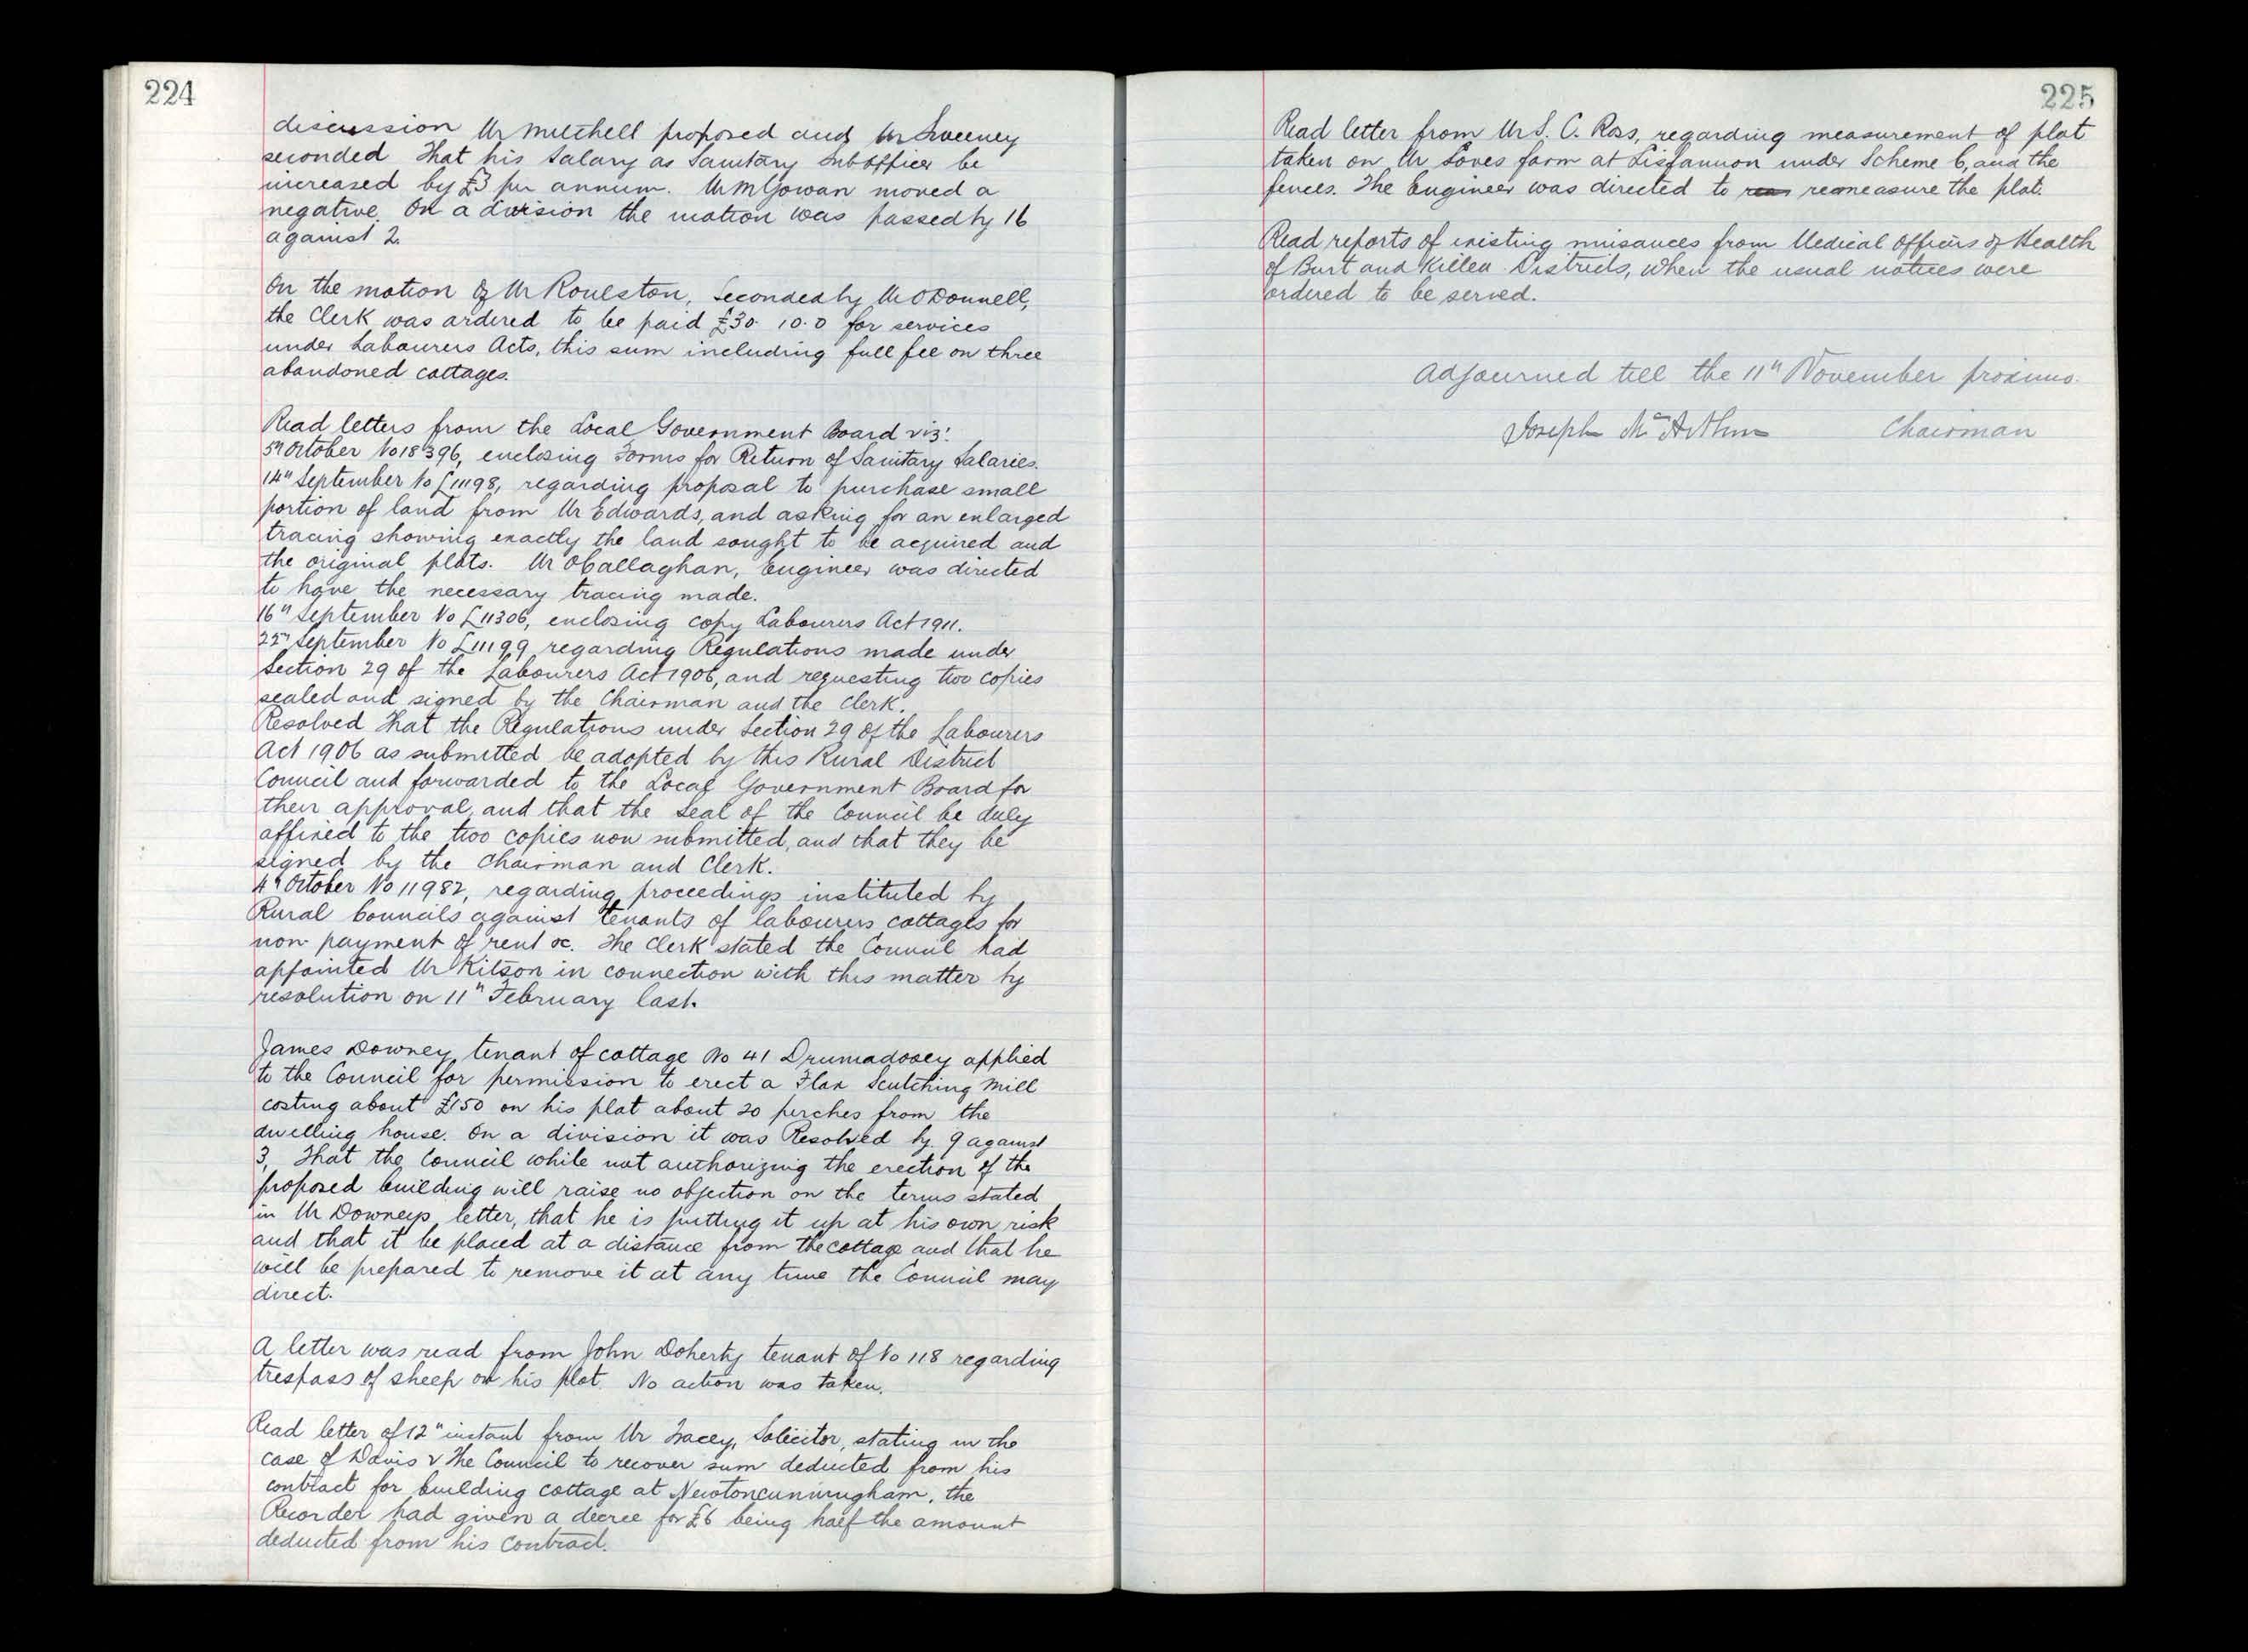 224
discussion Mr Mitchell proposed and Mr Sweeney
seconded That his salary as Sanitary Subofficer be
increased by £3 per annum. Mr McGowan moved a
negative. On a division the motion was passed by 16
against 2.
On the motion of Mr Roulston, Seconded by Mr O'Donnell,
the Clerk was ordered to be paid £30. 10. 0 for services
under Labourers Acts, this sum including full fee on three
abandoned cottages.
Read letters from the Local Government Board viz:
5th October No 18396, enclosing Forms for Return of Sanitary Salaries.
14" September No L11198, regarding proposal to purchase small
portion of land from Mr Edwards, and asking for an enlarged
tracing showing exactly the land sought to be acquired and
the original plots. Mr O'Callaghan, Engineer was directed
to have the necessary tracing made.
16" September No L11306, enclosing copy Labourers Act 1911.
22nd September No L11199 regarding Regulations made under
Section 29 of the Labourers Act 1906, and requesting two copies
sealed and signed by the Chairman and the Clerk.
Resolved That the Regulations under Section 29 of the Labourers
Act 1906 as submitted be adopted by this Rural District
Council and forwarded to the Local Government Board for
their approval, and that the Seal of the Council be duly
affixed to the two copies now submitted, and that they be
signed by the Chairman and Clerk.
4" October No 11982, regarding proceedings instituted by
Rural Councils against tenants of labourers cottages for
non-payment of rent &c. The Clerk stated the Council had
appointed Mr Kitson in connection with this matter by
resolution on 11" February last.
James Downey, tenant of cottage No 41 Drumadooey applied
to the Council for permission to erect a Flax Scutching Mill
costing about £150 on his plot about 20 perches from the
dwelling house. On a division it was Resolved by 9 against
3, That the Council while not authorizing the erection of the
proposed building will raise no objection on the terms stated
in Mr Downeys letter, that he is putting it up at his own risk
and that it be placed at a distance from the cottage and that he
will be prepared to remove it at any time the Council may
direct.
A letter was read from John Doherty tenant of No 118 regarding
trespass of sheep on his plot. No action was taken.
Read letter of 12" instant from Mr Tracey, Solicitor, stating in the
case of Davis v The Council to recover sum deducted from his
contract for building cottage at Newtoncunningham, the
Recorder had given a decree for £6 being half the amount
deducted from his contract.
225
Read letter from Mr S. C. Ross, regarding measurement of plot
taken on Mr Loves farm at Lisfannon under Scheme 6, and the
fences. The Engineer was directed to remeasure the plot.
Read reports of existing nuisances from Medical Officers of Health
of Burt and Killea Districts, when the usual notices were
ordered to be served.
Adjourned till the 11" November proximo.
Joseph McArthur Chairman